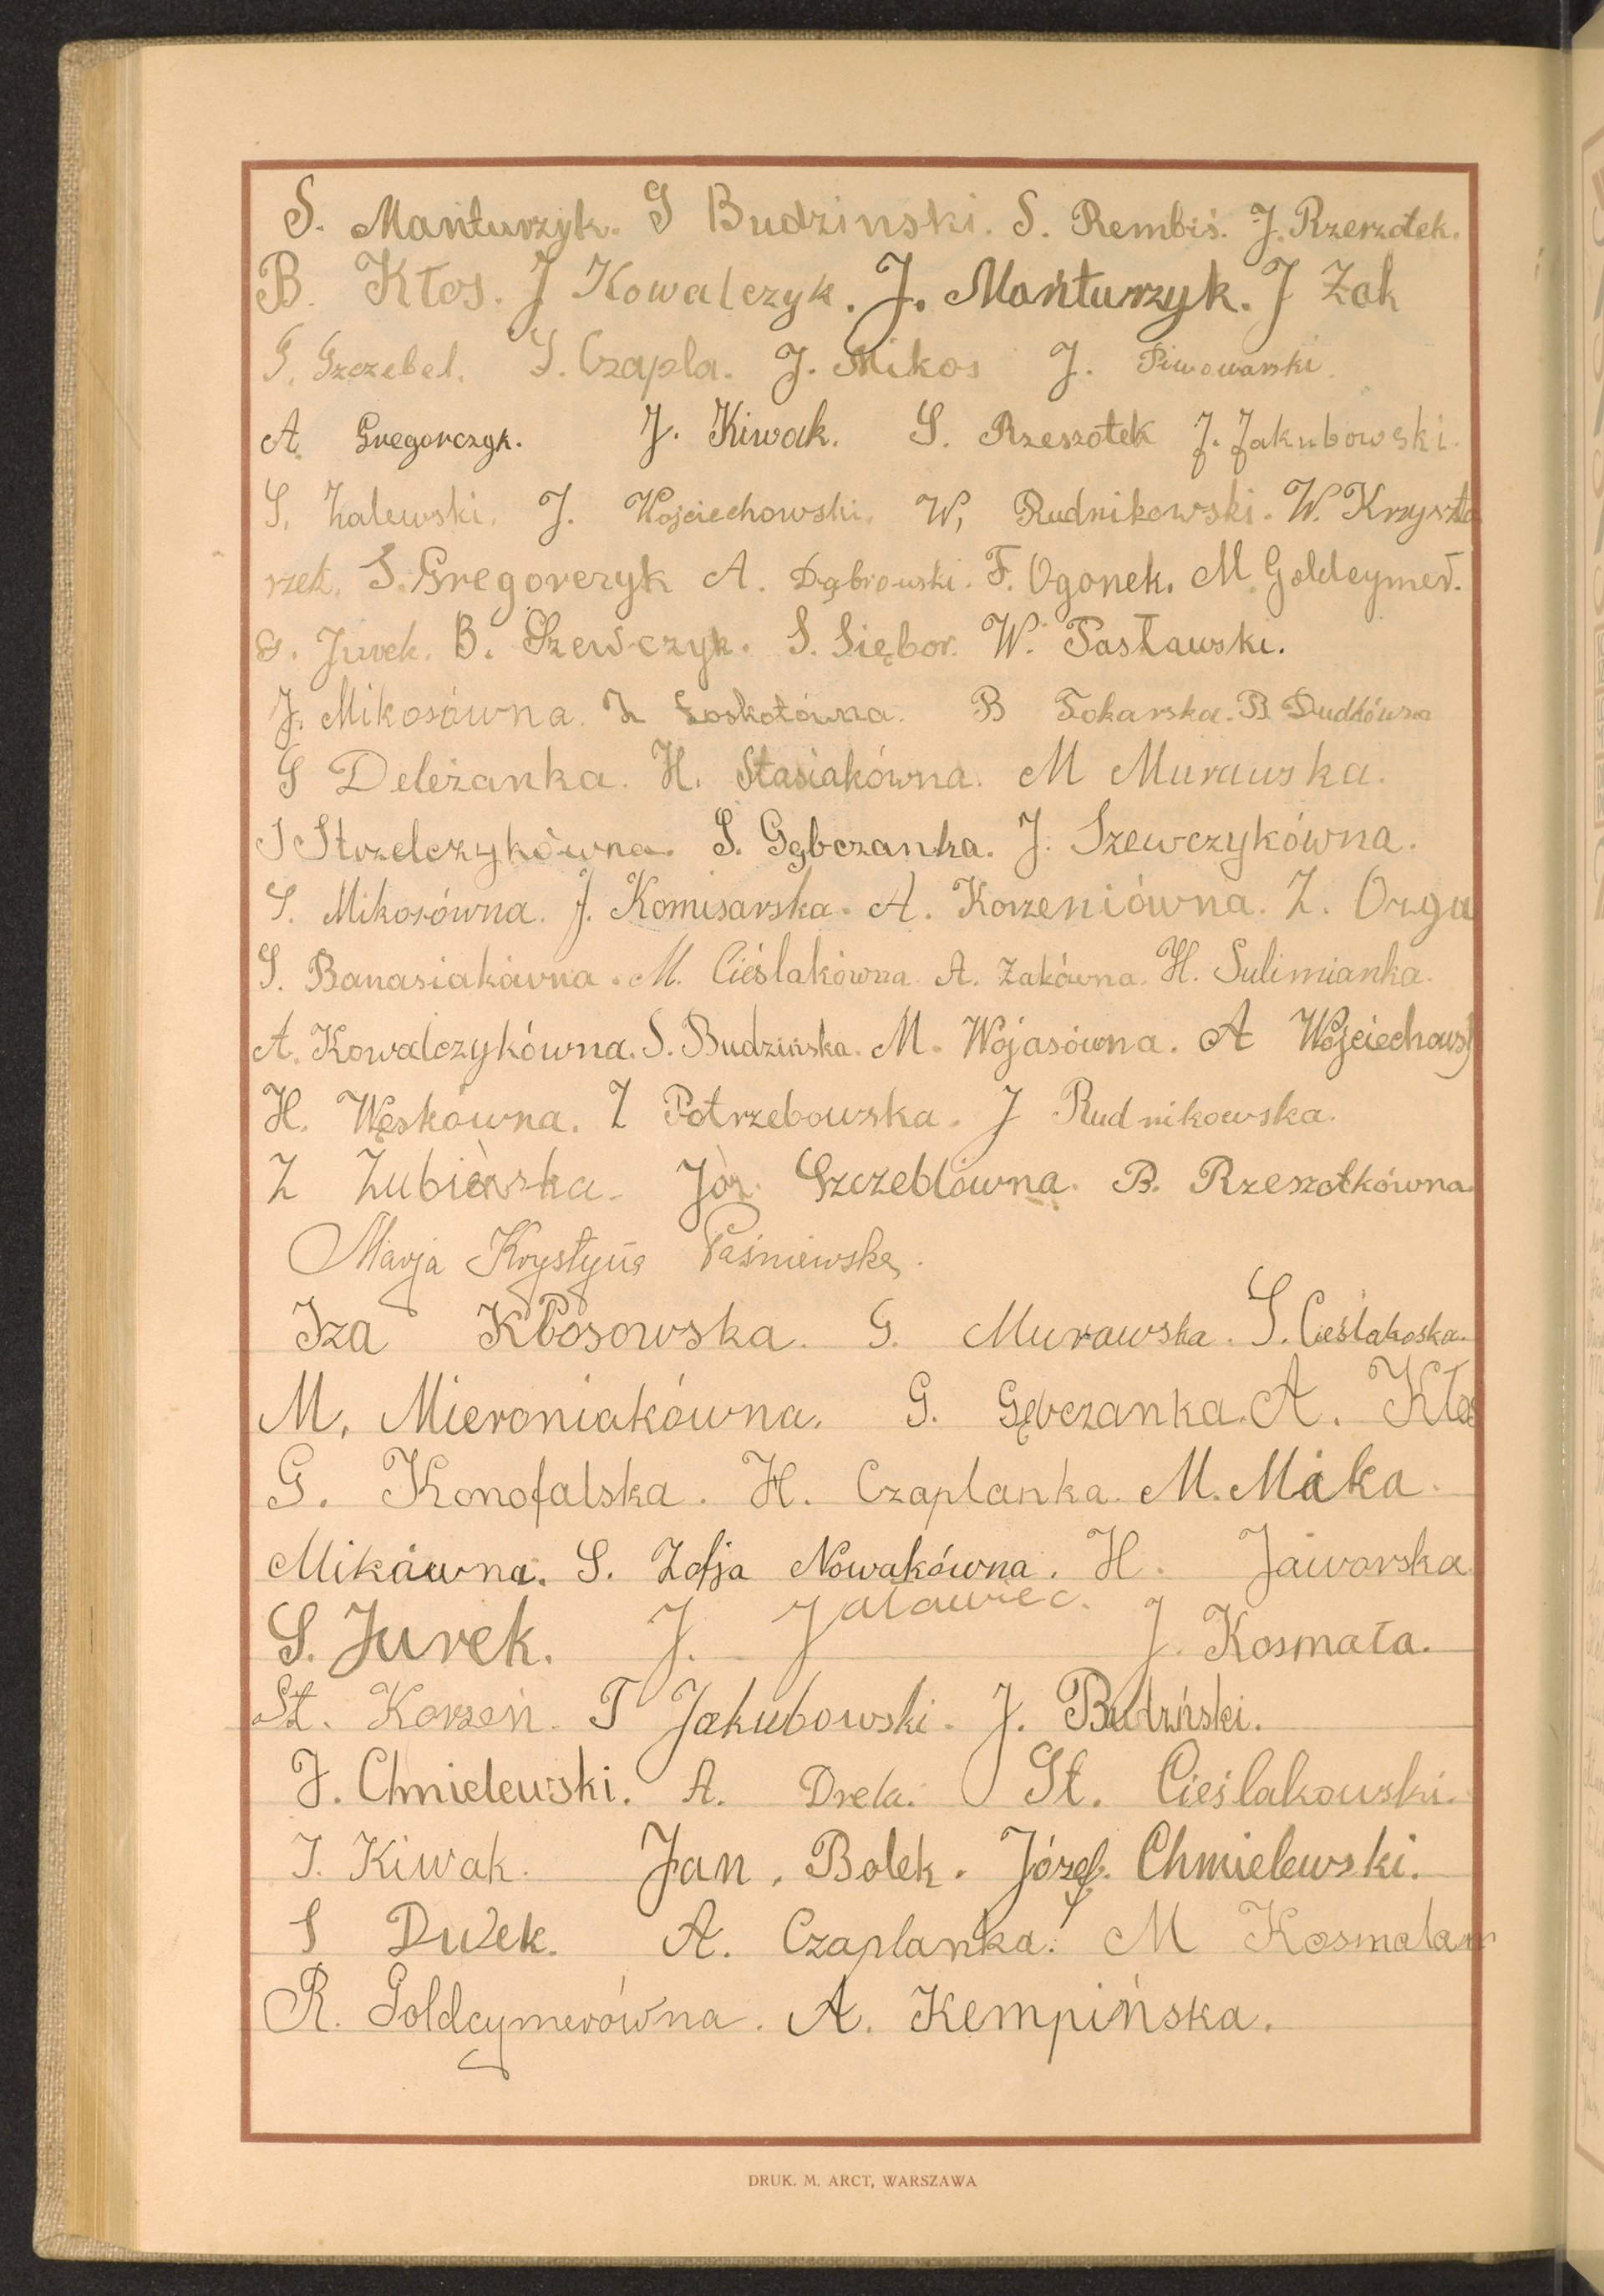 S. Mańturzyk. G Budzinski. S. Rembiś. J. Rzerzotek.
B. Kłos. J Kowalczyk. J. Mońturzyk. J Żak
G. Szczebel. S. Czapla. J. Mikos J. Piwowarski.
A. Gregorczyk. J. Kiwak. S. Rzeszotek J. Jakubowski.
S. Zalewski. J. Wojciechowski. W, Rudnikowski. W. Krzyszto
rzek. S. Gregorczyk A. Dąbrowski. F. Ogonek. M. Goldcymer.
G. Jurek. B. Szewczyk. S. Siębor. W. Pasławski.
J. Mikosówna. Z Łoskotówna. B Tokarska. B. Dudkówna
G Deleżanka. H. Stasiakówna. M Murawska.
S Strzelczykówna. S. Gębczanka. J. Szewczykówna.
S. Mikosówna. J. Komisarska. A. Korzeniówna. Z. Orzgu
S. Banasiakówna. M. Cieślakówna. A. Żakówna. H. Sulimianka.
A. Kowalczykówna. S. Budzińska. M. Wójasówna. A Wojciechows
H. Węskówna. Z Potrzebowska. J Rudnikowska.
Z Zubierska. Józ. Szczeblówna. B. Rzeszotkówna.
Marja Krystyna Paśniewska.
Iza Kłosowska. G. Murawska. S. Cieślakoska.
M. Mieroniakówna. G. Gębczanka. A. Kłos
G. Konofalska. H. Czaplanka. M. Mika.
Mikówna. S. Zofja Nowakówna. H. Jaworska.
S. Jurek. J. Jaławiec. J. Kosmała.
St. Korzeń. T Jakubowski. J. Budzński.
J. Chmielewski. A. Drela. St. Cieślakowski.
J. Kiwak. Jan. Bolek. Józef. Chmielewski.
S Duvek. A. Czaplanka. M Kosmalam
R. Goldcymerówna. A. Kempińska.
DRUK. M. ARCT, WARSZAWA